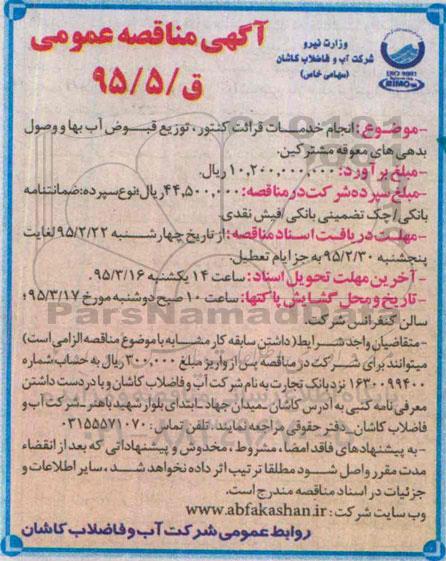 وزارت نیرو
شرکت آب و فاضلاب کاشان
(سهامی خاص)
ISO 9001
آگهی مناقصه عمومی
ق/۹۵/۵
-موضوع: انجام خدمات قرائت کنتور، توزیع قبوض آب بها و وصول
بدهی های معوقه مشترکین.
-مبلغ برآورد: ۱۰,۲۰۰,۰۰۰,۰۰۰ ریال.
-مبلغ سپرده شرکت در مناقصه: ۴۴,۵۰۰,۰۰۰ ریال؛ نوع سپرده: ضمانتنامه
بانکی/چک تضمینی بانکی/فیش نقدی.
-مهلت دریافت اسناد مناقصه: از تاریخ چهارشنبه ۹۵/۲/۲۲ لغایت
پنجشنبه ۹۵/۲/۳۰ به جز ایام تعطیل.
-آخرین مهلت تحویل اسناد: ساعت ۱۴ یکشنبه ۹۵/۳/۱۶.
-تاریخ و محل گشایش پاکتها: ساعت ۱۰ صبح دوشنبه مورخ ۹۵/۳/۱۷؛
سالن کنفرانس شرکت.
-متقاضیان واجد شرایط (داشتن سابقه کار مشابه با موضوع مناقصه الزامی است)
میتوانند برای شرکت در مناقصه پس از واریز مبلغ ۳۰۰,۰۰۰ ریال به حساب شماره
۱۶۳۰۰۹۹۴۰۰ نزد بانک تجارت به نام شرکت آب و فاضلاب کاشان و با در دست داشتن
معرفی نامه کتبی به آدرس کاشان-میدان جهاد-ابتدای بلوار شهید باهنر-شرکت آب و
فاضلاب کاشان-دفتر حقوقی مراجعه نمایند. تلفن تماس: ۰۳۱۵۵۵۷۱۰۷۰
-به پیشنهادهای فاقد امضا، مشروط، مخدوش و پیشنهاداتی که بعد از انقضاء
مدت مقرر واصل شود مطلقا ترتیب اثر داده نخواهد شد، سایر اطلاعات و
جزئیات در اسناد مناقصه مندرج است.
وب سایت شرکت: www.abfakashan.ir
روابط عمومی شرکت آب و فاضلاب کاشان
ParsNamadData